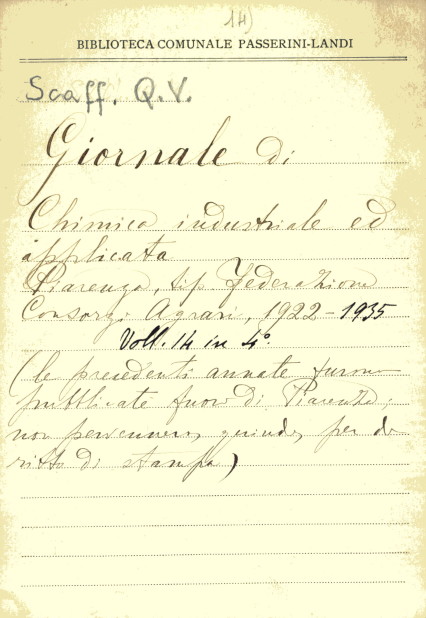 14)
BIBLIOTECA COMUNALE PASSERINI-LANDI
Scaff. Q.V.
Giornale di
Chimica industriale ed
applicata
Piacenza, tip. Federazione
Consorzi Agrari, 1922-1935
Voll. 14 in 4°.
(le precedenti annate furono
pubblicate fuori di Piacenza;
non pervennero, quindi, per di
ritto di stampa)